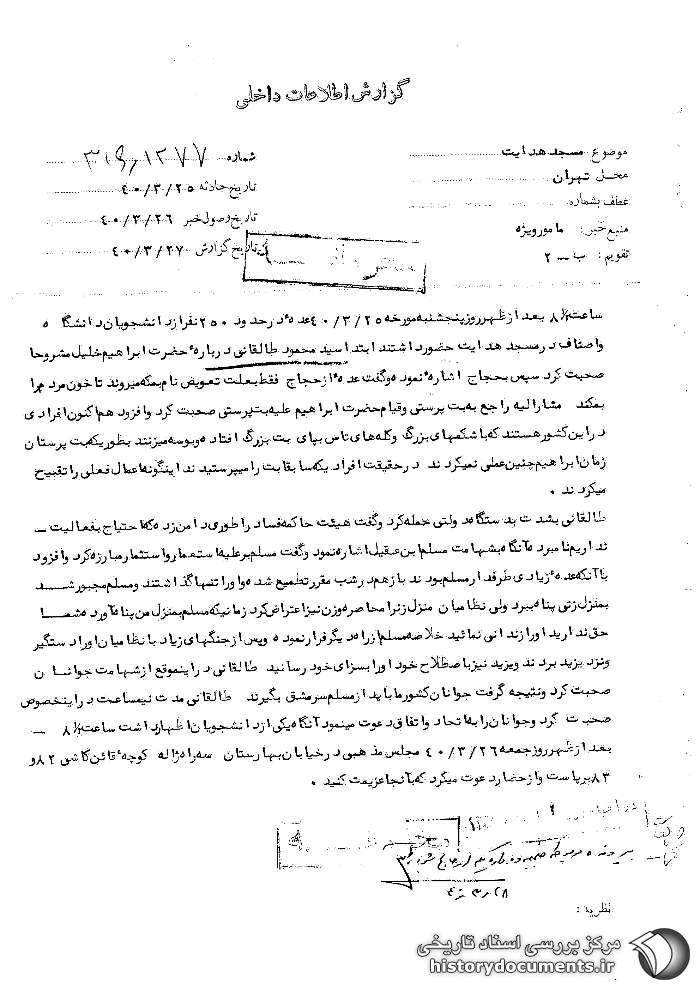 گزارش اطلاعات داخلی
موضوع مسجد هدایت
محل تهران
عطف بشماره
منبع خبر: مامور ویژه
تقویم: ب ــ ۲
شماره ۳۱۶٫۱۲۷۷
تاریخ حادثه ۴۰/۳/۲۵
تاریخ وصول خبر ۴۰/۳/۲۶
تاریخ گزارش ۴۰/۳/۲۷
ساعت ۸½ بعد از ظهر روز پنجشنبه مورخه ۴۰/۳/۲۵ عده‌ در حدود ۲۵۰ نفر از دانشجویان دانشگاه
واصناف در مسجد هدایت حضور داشتند ابتدا سید محمود طالقانی درباره حضرت ابراهیم خلیل مشروحا
صحبت کرد سپس بحجاج اشاره نموده وگفت عده از حجاج فقط بعلت تعویض نام بمکه میروند تا خون مردم را
بمکند مشارالیه راجع به بت پرستی وقیام حضرت ابراهیم علیه بت پرستی صحبت کرد وافزود هم اکنون افرادی
در این کشور هستند که با شکمهای بزرگ وکله‌های تاس بپای بت بزرگ افتاده وبوسه میزنند بطوریکه بت پرستان
زمان ابراهیم چنین عملی نمیکردند در حقیقت افرادیکه سابقا بت را میپرستیدند اینگونه اعمال فعلی را تقبیح
میکردند .
طالقانی بشدت بدستگاه دولتی حمله کرد وگفت هیئت حاکمه فساد را طوری دامن زده که احتیاج بفعالیت ــ
نداریم نامبرده آنگاه بشهامت مسلم ابن عقیل اشاره نمود وگفت مسلم بر علیه استعمار واستثمار مبارزه کرد وافزود
با آنکه عده زیادی طرفدار مسلم بودند باز هم در شب مقرر تطمیع شده واو را تنها گذاشتند ومسلم مجبور شد
بمنزل زنی پناه ببرد ولی نظامیان منزل زنرا محاصره وزن نیز اعتراض کرد زمانیکه مسلم بمنزل من پناه آورده شما
حق ندارید او را زندانی نمائید خلاصه مسلم از راه دیگر فرار نموده وپس از جنگهای زیاد با نظامیان او را دستگیر
ونزد یزید بردند ویزید نیز باصطلاح خود او را بسزای خود رسانید طالقانی در اینموقع از شهامت جوانان
صحبت کرد ونتیجه گرفت جوانان کشور ما باید از مسلم سرمشق بگیرند طالقانی مدت نیمساعت در اینخصوص
صحبت کرد وجوانان را به اتحاد واتفاق دعوت مینمود آنگاه یکی از دانشجویان اظهار داشت ساعت ۸½ ــ
بعد از ظهر روز جمعه ۴۰/۳/۲۶ مجلس مذهبی در خیابان بهارستان سه راه ژاله کوچه قائن کاشی ۸۲ و
۸۳ برپاست واز حضار دعوت میگرد که بآنجا عزیمت کنید .
نظریه :
مرکز بررسی اسناد تاریخی
historydocuments.ir